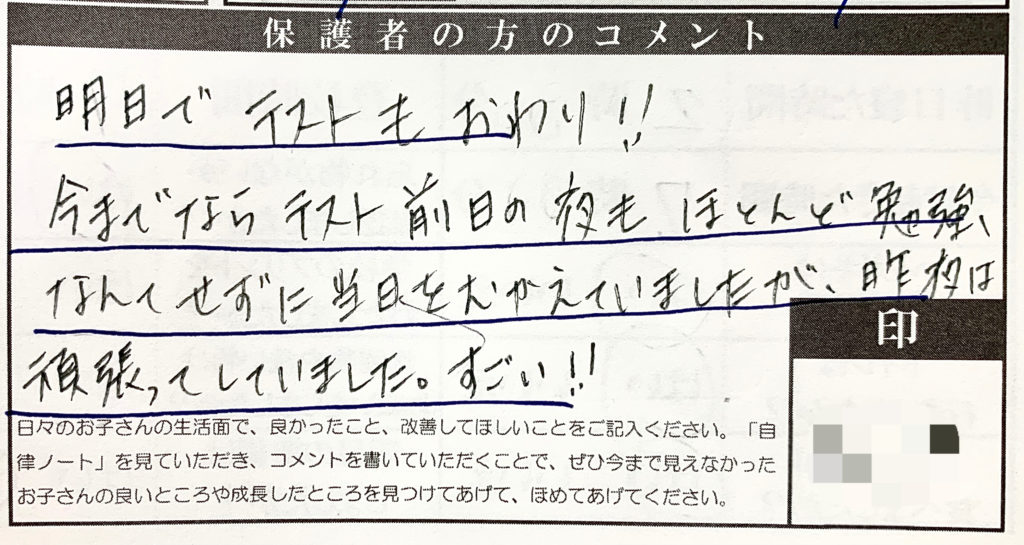 保護者の方のコメント
明日で テストも おわり!!
今までなら テスト 前日の 夜も ほとんど 勉強、
なんて せずに 当日を むかえていましたが、昨夜は
頑張ってしていました。すごい!!
印
日々のお子さんの生活面で、良かったこと、改善してほしいことをご記入ください。「自
律ノート」を見ていただき、コメントを書いていただくことで、ぜひ今まで見えなかった
お子さんの良いところや成長したところを見つけてあげて、ほめてあげてください。